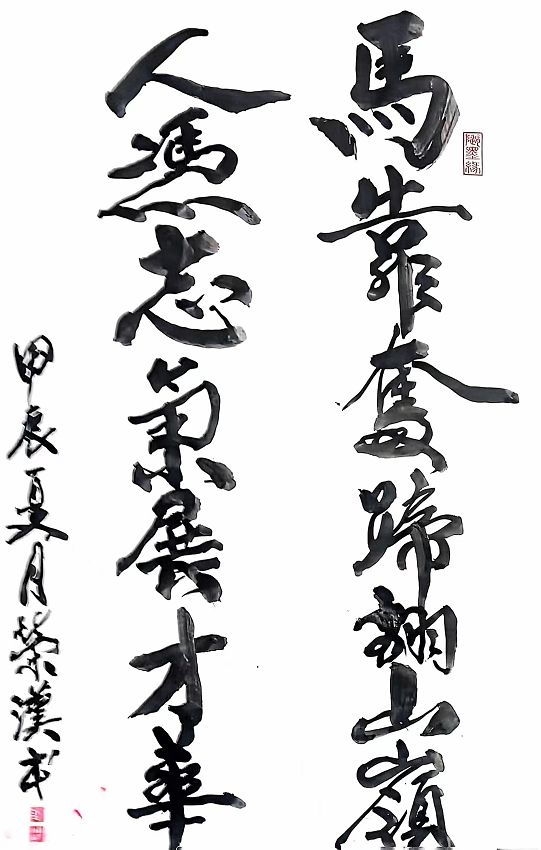 馬靠奮蹄翻山嶺
人憑志氣展才華
甲辰夏月榮漢書
翰墨緣